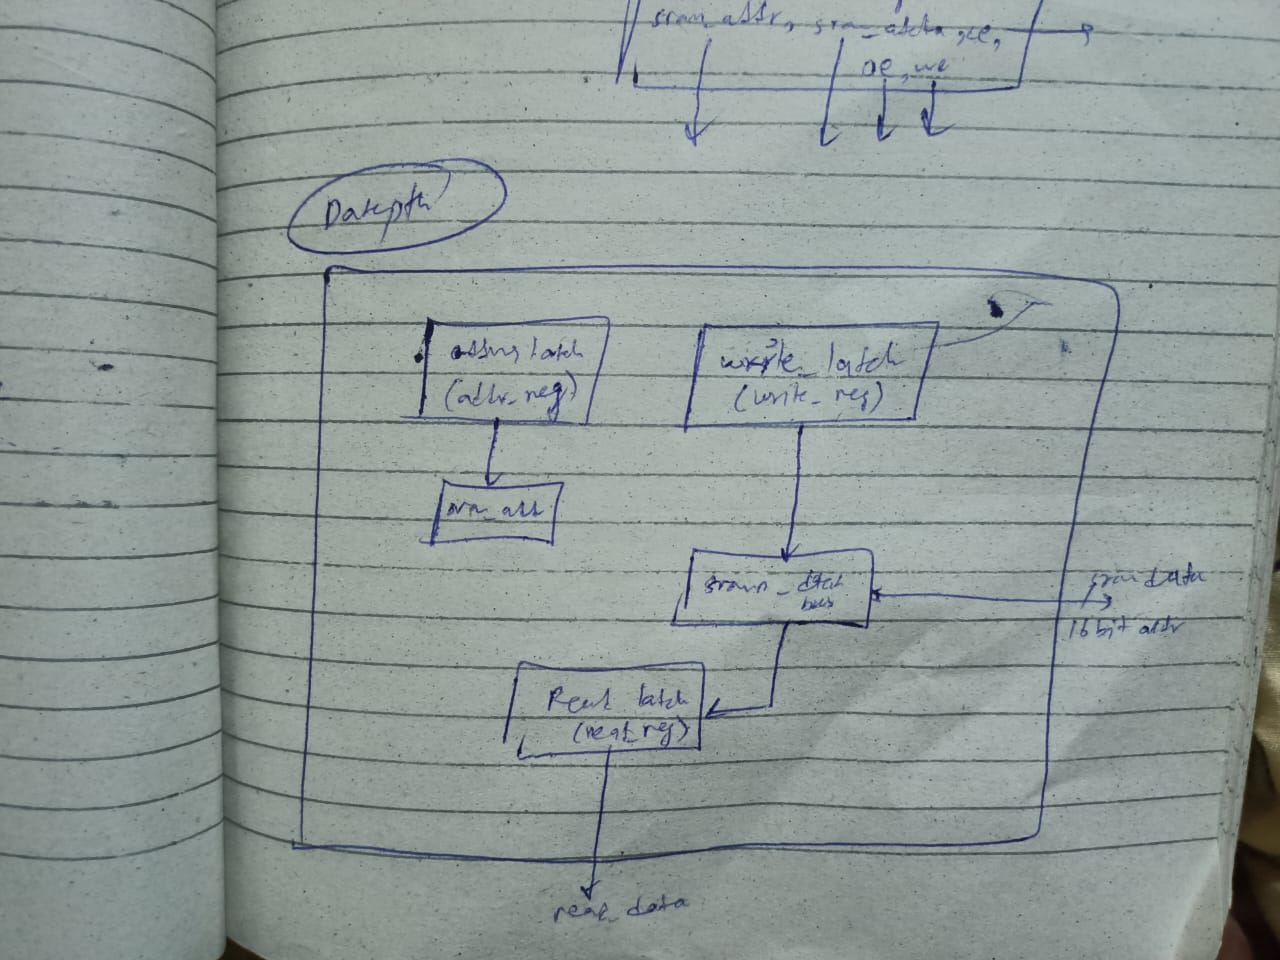 sram_addr, sram_data, ce,
oe, we
Datapth
address latch
(addr_reg)
write_latch
(write_reg)
sra_add
sram_data
bus
sram data
16 bit addr
Read latch
(read_reg)
read_data